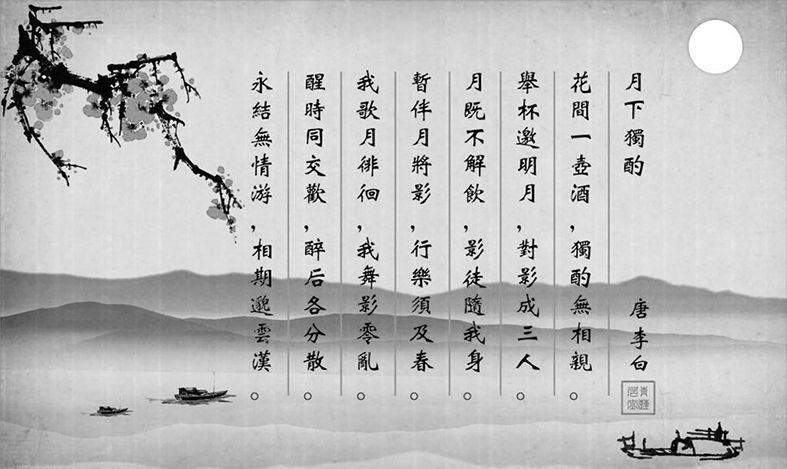 月下獨酌
唐李白
花間一壺酒,獨酌無相親。
舉杯邀明月,對影成三人。
月既不解飲,影徒隨我身。
暫伴月將影,行樂須及春。
我歌月徘徊,我舞影零亂。
醒時同交歡,醉后各分散。
永結無情游,相期邈雲漢。